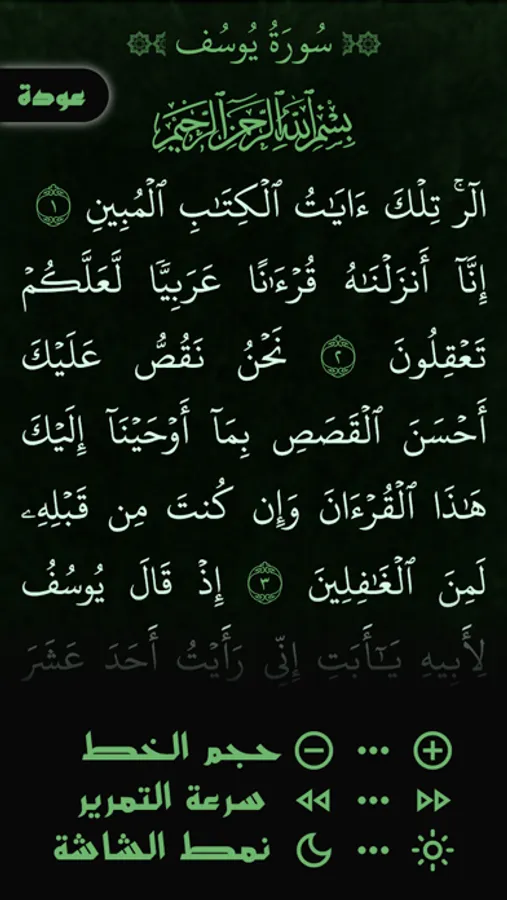 سُورَةُ يُوسُف
عودة
بِسْمِ ٱللَّهِ ٱلرَّحْمَٰنِ ٱلرَّحِيمِ
الٓرۚ تِلْكَ ءَايَٰتُ ٱلْكِتَٰبِ ٱلْمُبِينِ ١
إِنَّآ أَنزَلْنَٰهُ قُرْءَٰنًا عَرَبِيًّا لَّعَلَّكُمْ
تَعْقِلُونَ ٢ نَحْنُ نَقُصُّ عَلَيْكَ
أَحْسَنَ ٱلْقَصَصِ بِمَآ أَوْحَيْنَآ إِلَيْكَ
هَٰذَا ٱلْقُرْءَانَ وَإِن كُنتَ مِن قَبْلِهِۦ
لَمِنَ ٱلْغَٰفِلِينَ ٣ إِذْ قَالَ يُوسُفُ
لِأَبِيهِ يَٰٓأَبَتِ إِنِّى رَأَيْتُ أَحَدَ عَشَرَ
حجم الخط
سرعة التمرير
نمط الشاشة